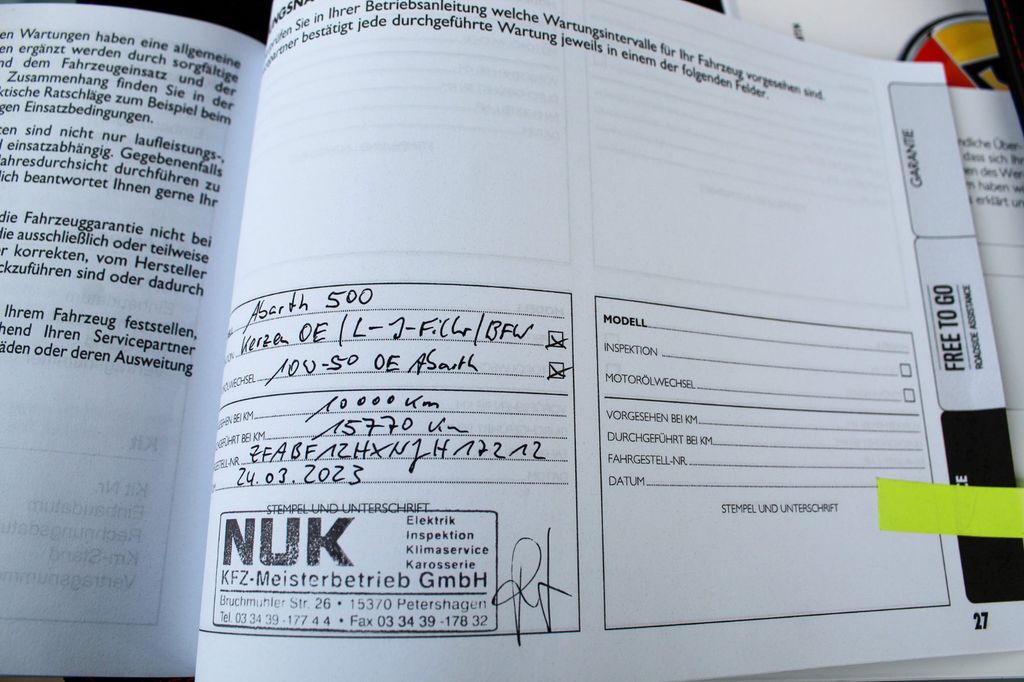 en Wartungen haben eine allgemeine
en ergänzt werden durch sorgfältige
nd dem Fahrzeugeinsatz und der
Zusammenhang finden Sie in der
ktische Ratschläge zum Beispiel beim
gen Einsatzbedingungen.
en sind nicht nur laufleistungs-,
einsatzabhängig. Gegebenenfalls
Jahresdurchsicht durchführen zu
lich beantwortet Ihnen gerne Ihr
die Fahrzeuggarantie nicht bei
die ausschließlich oder teilweise
er korrekten, vom Hersteller
ckzuführen sind oder dadurch
Ihrem Fahrzeug feststellen,
hend Ihren Servicepartner
äden oder deren Ausweitung
üfen Sie in Ihrer Betriebsanleitung welche Wartungsintervalle für Ihr Fahrzeug vorgesehen sind.
partner bestätigt jede durchgeführte Wartung jeweils in einem der folgenden Felder.
Abarth 500
Kerzen OE / L-I-Filter / BFW
ÖLWECHSEL 10W-50 OE Abarth
EHEN BEI KM 10000 Km
GEFÜHRT BEI KM 15770 Km
GESTELL-NR. ZFABF12HXNJH17212
24.03.2023
STEMPEL UND UNTERSCHRIFT
NUK
Elektrik
Inspektion
Klimaservice
Karosserie
KFZ-Meisterbetrieb GmbH
Bruchmühler Str. 26 • 15370 Petershagen
Tel. 03 34 39 -177 4 4 • Fax 03 34 39 -178 32
MODELL
INSPEKTION
MOTORÖLWECHSEL
VORGESEHEN BEI KM
DURCHGEFÜHRT BEI KM
FAHRGESTELL-NR.
DATUM
STEMPEL UND UNTERSCHRIFT
GARANTIE
FREE TO GO
ROADSIDE ASSISTANCE
CE
27
ndliche Über-
dass sich Ihr
en des Wer
n haben w
erklärt un